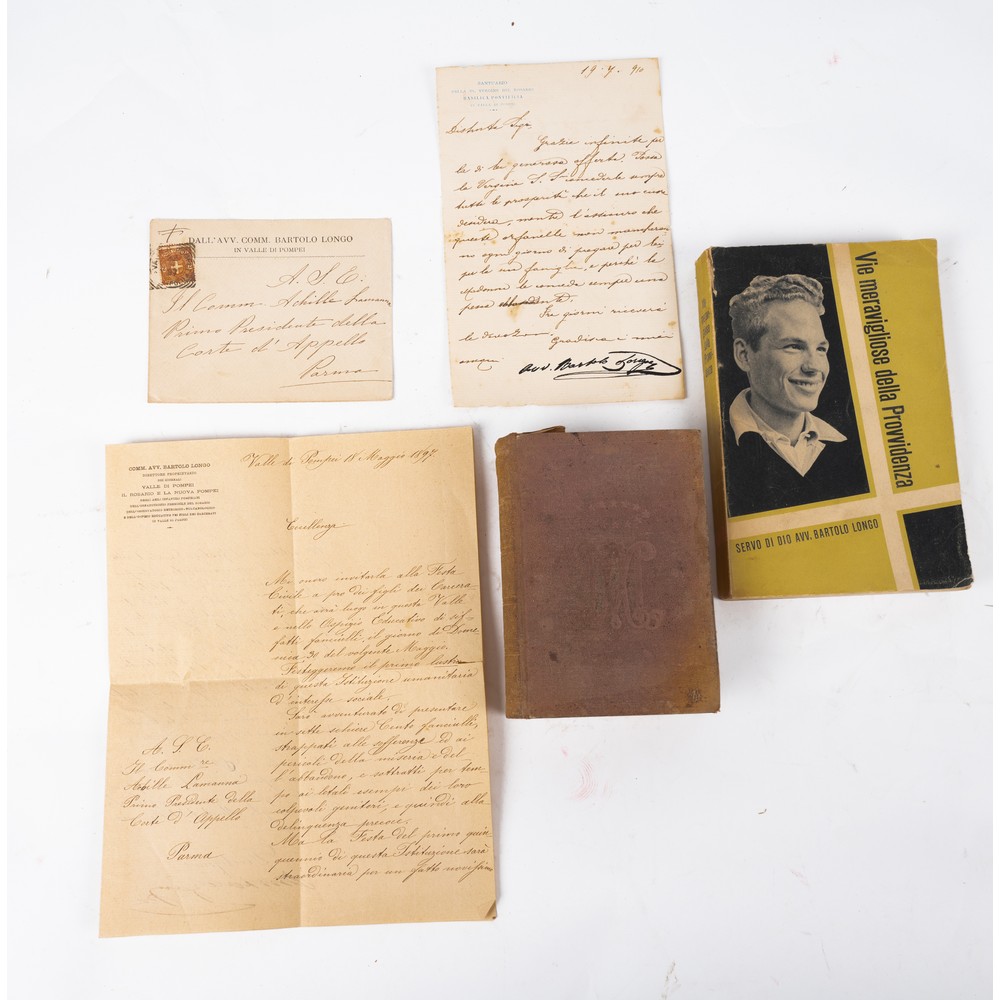 DALL'AVV. COMM. BARTOLO LONGO
IN VALLE DI POMPEI
A. S. E.
Il Comm. Achille
Primo Presidente della
Corte d'Appello
Parma
SANTUARIO
BASILICA PONTIFICIA
19. 7. 910
Distinta Sig.a
Grazie infinite per
la di lei generosa offerta. Possa
la Vergine S. S.
tutte le prosperità che il suo cuore
desidera, mentre l'assicuro che
queste orfanelle non mancheran
no ogni giorno di pregare per lei
per la sua famiglia, e perchè la
conceda sempre una
Fra giorni riceverà
Gradisca i miei
Avv. Bartolo Longo
Vie meravigliose della Provvidenza
SERVO DI DIO AVV. BARTOLO LONGO
COMM. AVV. BARTOLO LONGO
DIRETTORE PROPRIETARIO
DEI PERIODICI
VALLE DI POMPEI
IL ROSARIO E LA NUOVA POMPEI
IN VALLE DI POMPEI
Valle di Pompei 18 Maggio 1897
Eccellenza
Mi onoro invitarla alla Festa
Civile a pro dei figli dei Carcera
ti, che avrà luogo in questa Valle
e nello Ospizio Educativo di sif-
fatti fanciulli, il giorno di Dome
nica 30 del volgente Maggio.
Festeggeremo il primo lustro
di questa Istituzione umanitaria
d'interesse sociale.
Sarò avventurato di presentare
in sette schiere Cento fanciulli,
strappati alle sofferenze ed ai
pericoli della miseria e del
l'abbandono, e sottratti per tem
po ai letali esempi dei loro
colpevoli genitori, e quindi alla
delinquenza precoce.
Ma la Festa del primo quin
quennio di questa Istituzione sarà
straordinaria per un fatto novissimo
A. S. E.
Il Comm.re
Achille Lamanna
Primo Presidente della
Corte d'Appello
Parma